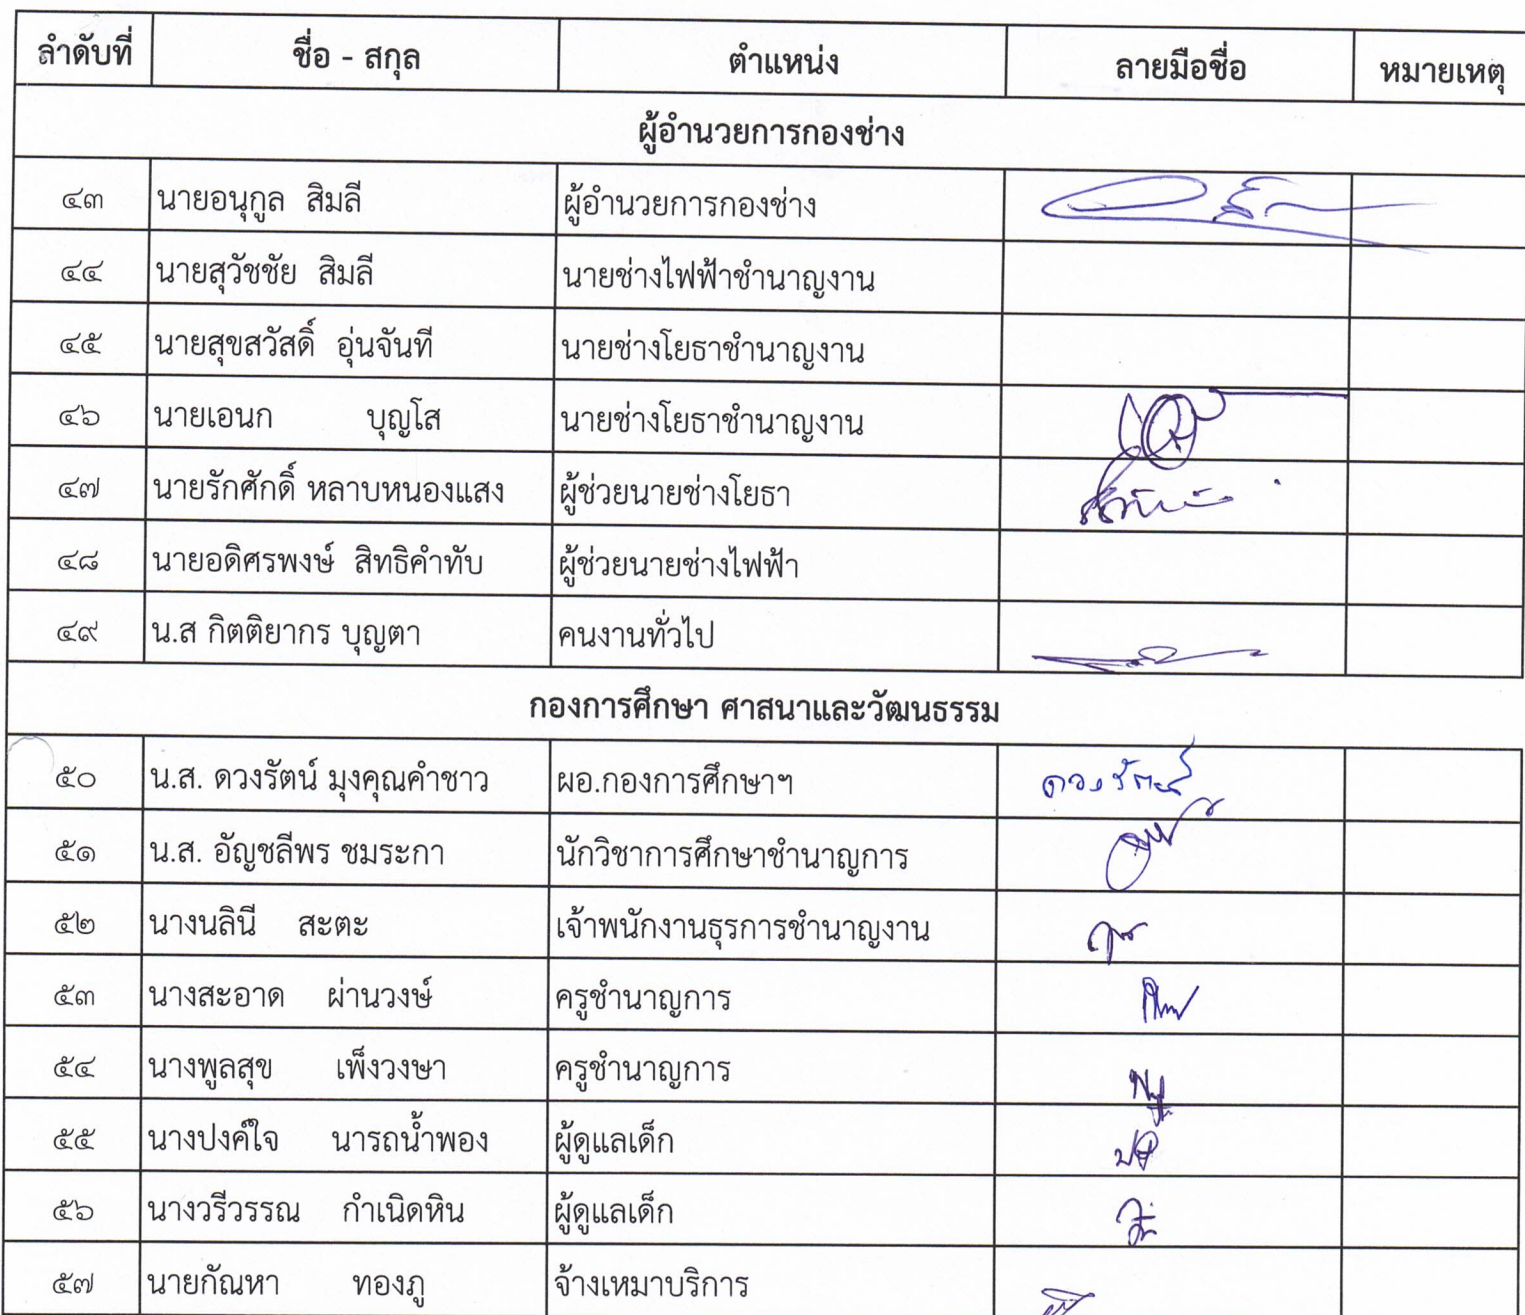 ลำดับที่ ชื่อ - สกุล ตำแหน่ง ลายมือชื่อ หมายเหตุ
ผู้อำนวยการกองช่าง
๔๓ นายอนุกูล สิมลี ผู้อำนวยการกองช่าง
๔๔ นายสุวัชชัย สิมลี นายช่างไฟฟ้าชำนาญงาน
๔๕ นายสุขสวัสดิ์ อุ่นจันที นายช่างโยธาชำนาญงาน
๔๖ นายเอนก บุญโส นายช่างโยธาชำนาญงาน
๔๗ นายรักศักดิ์ หลาบหนองแสง ผู้ช่วยนายช่างโยธา
๔๘ นายอดิศรพงษ์ สิทธิคำทับ ผู้ช่วยนายช่างไฟฟ้า
๔๙ น.ส กิตติยากร บุญตา คนงานทั่วไป
กองการศึกษา ศาสนาและวัฒนธรรม
๕๐ น.ส. ดวงรัตน์ มุงคุณคำชาว ผอ.กองการศึกษาฯ ดวงรัตน์
๕๑ น.ส. อัญชลีพร ชมระกา นักวิชาการศึกษาชำนาญการ
๕๒ นางนลินี สะตะ เจ้าพนักงานธุรการชำนาญงาน
๕๓ นางสะอาด ผ่านวงษ์ ครูชำนาญการ
๕๔ นางพูลสุข เพ็งวงษา ครูชำนาญการ
๕๕ นางปงค์ใจ นารถน้ำพอง ผู้ดูแลเด็ก
๕๖ นางวรีวรรณ กำเนิดหิน ผู้ดูแลเด็ก
๕๗ นายกัณหา ทองภู จ้างเหมาบริการ